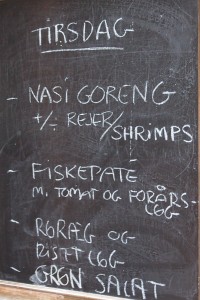 TIRSDAG
- NASI GORENG
+/- REJER/
SHRIMPS
- FISKEPATÉ
M. TOMAT OG FORÅRS-
LØG
- RØRÆG OG
RISTT LØG
- GRØN SALAT